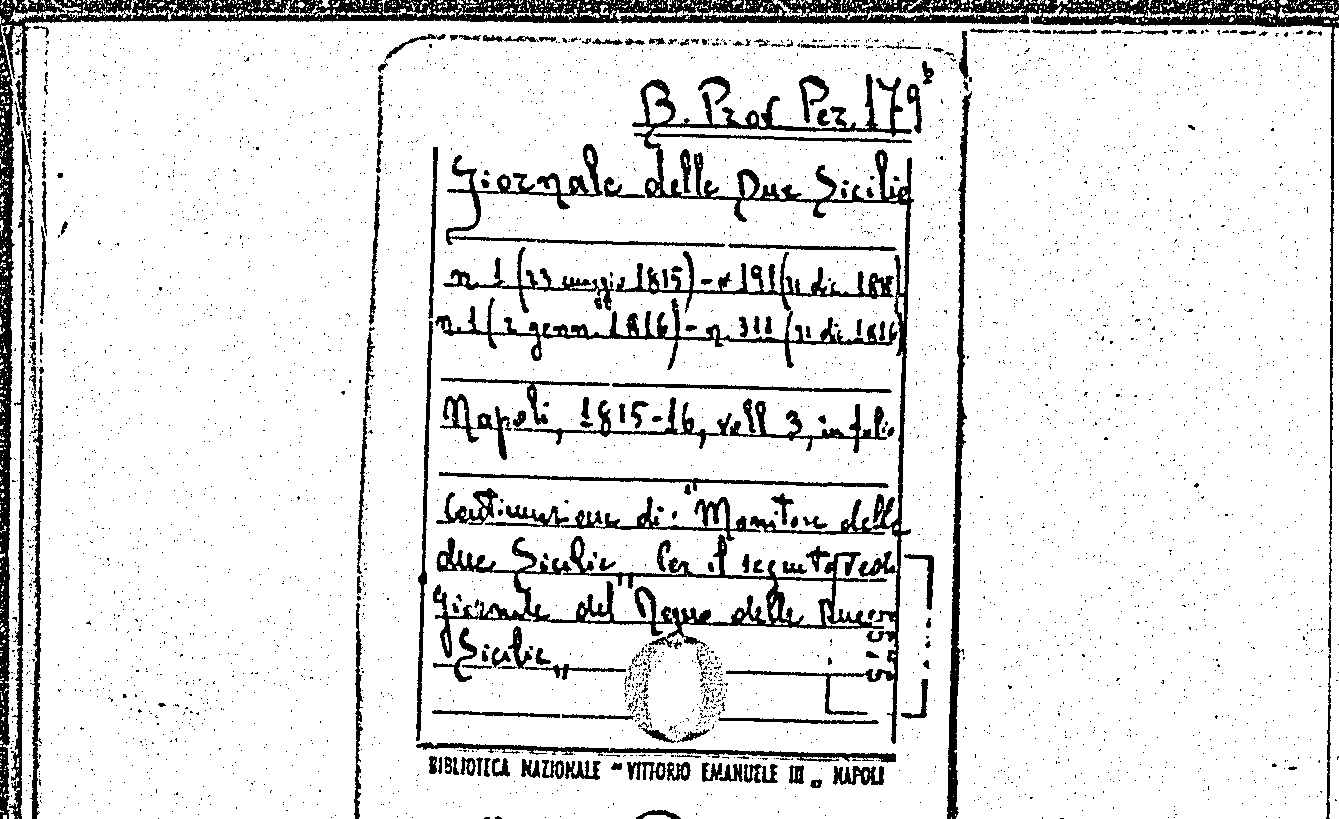 B. Prov Per. 179 b
Giornale delle Due Sicilie
n. 1 (23 maggio 1815) - n. 191 (31 dic. 1815)
n. 1 (2 genn. 1816) - n. 311 (31 dic. 1816)
Napoli, 1815-16, voll 3, in folio
Continuazione di: "Monitore delle
due Sicilie„ Per il seguito vedi
Giornale del "Regno delle Due
Sicilie„
BIBLIOTECA NAZIONALE "VITTORIO EMANUELE III„ NAPOLI